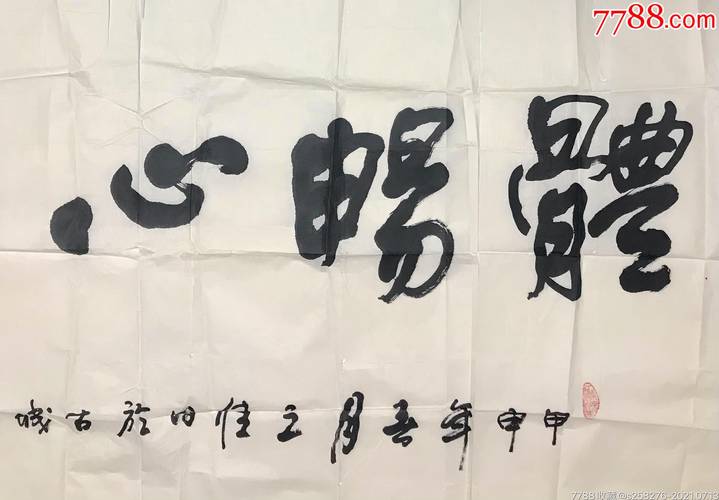 7788.com
體暢心
甲申年春月之佳日於古城
7788收藏@s258276-2021.07.13